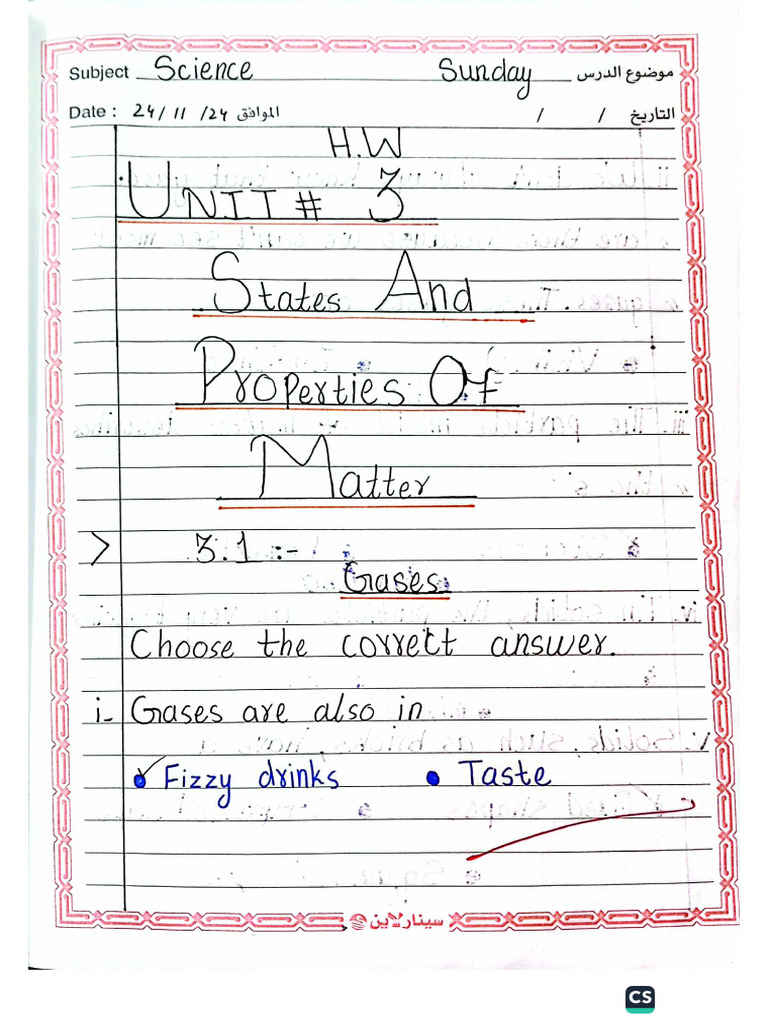 Subject Science Sunday موضوع الدرس
Date : 24/11/24 الموافق / / التاريخ
H.W
UNIT # 3
States And
Properties Of
Matter
> 3.1 :-
Gases
Choose the correct answer.
i- Gases are also in
✓ Fizzy drinks • Taste
سينارلاين
CS